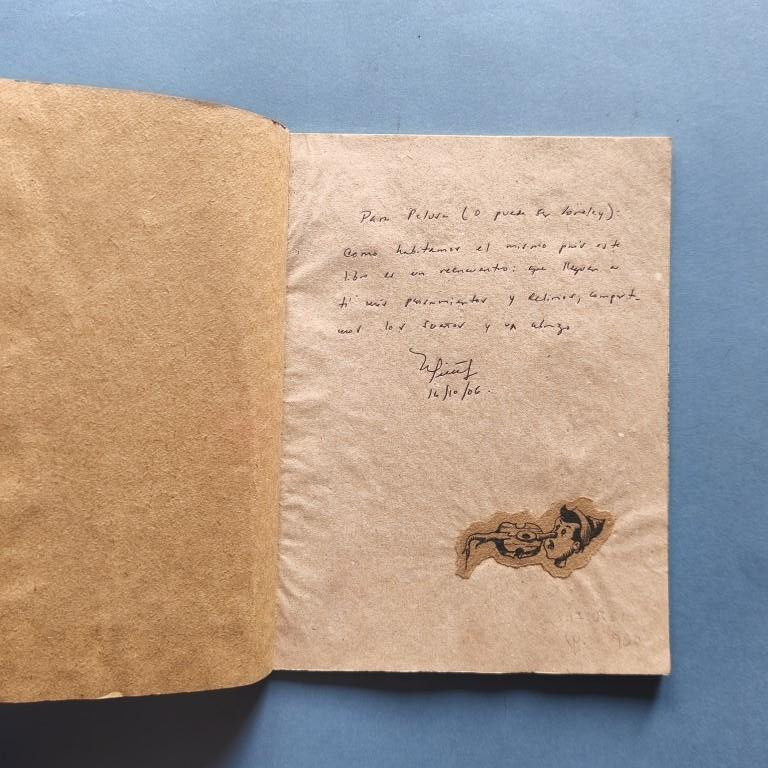 Para Pelusa (o puede ser                ):
Como habitamos el mismo país este
libro es un reencuentro: que lleguen a
ti mis pensamientos y delirios, comparta
mos los sueños y un abrazo
14/10/06.